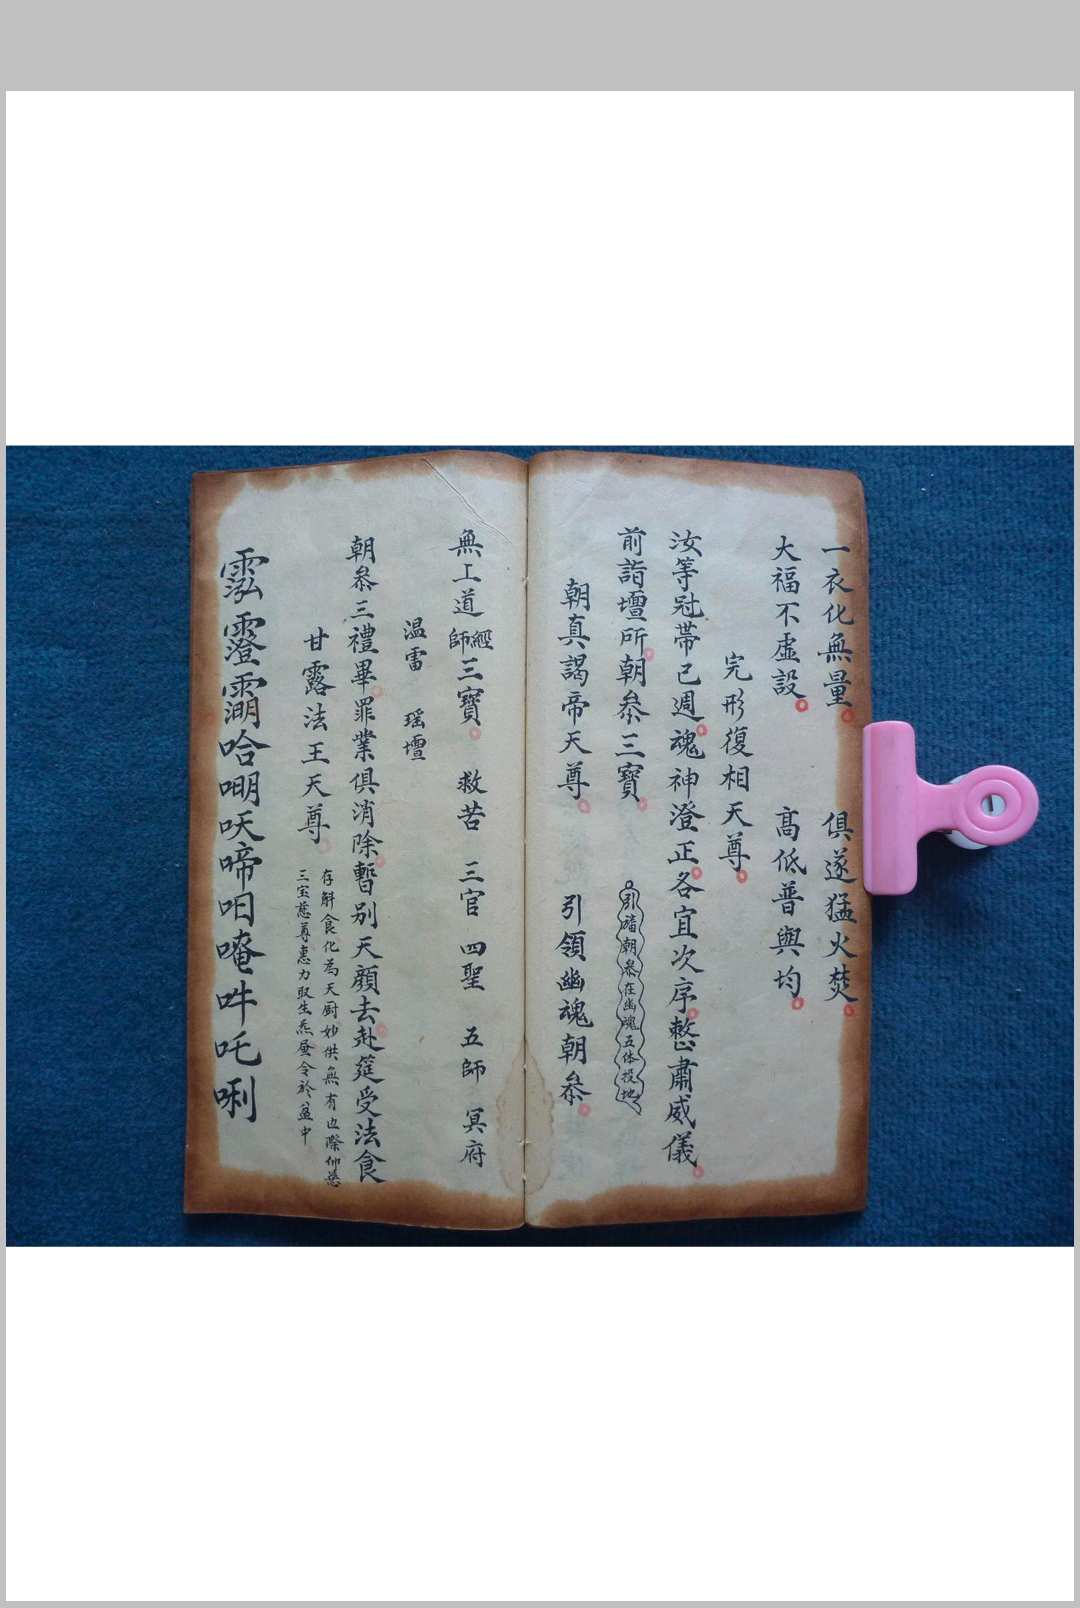 一衣化無量 俱遂猛火焚
大福不虛設 高低普與均
完形復相天尊
汝等冠帶已週魂神澄正各宜次序整肅威儀
前詣壇所朝叅三寶 引旛朝叅在幽魂五体投地
朝真謁帝天尊 引領幽魂朝叅
無上道經師三寶 救苦 三官 四聖 五師 冥府
温雷 瑶壇
朝叅三禮畢罪業俱消除暫别天顔去赴筵受法食
甘露法王天尊
存斛食化為天厨妙供無有边際仰慈
三宝慈尊惠力 令於盆中
哈唨吙啼呬唵吽吒唎